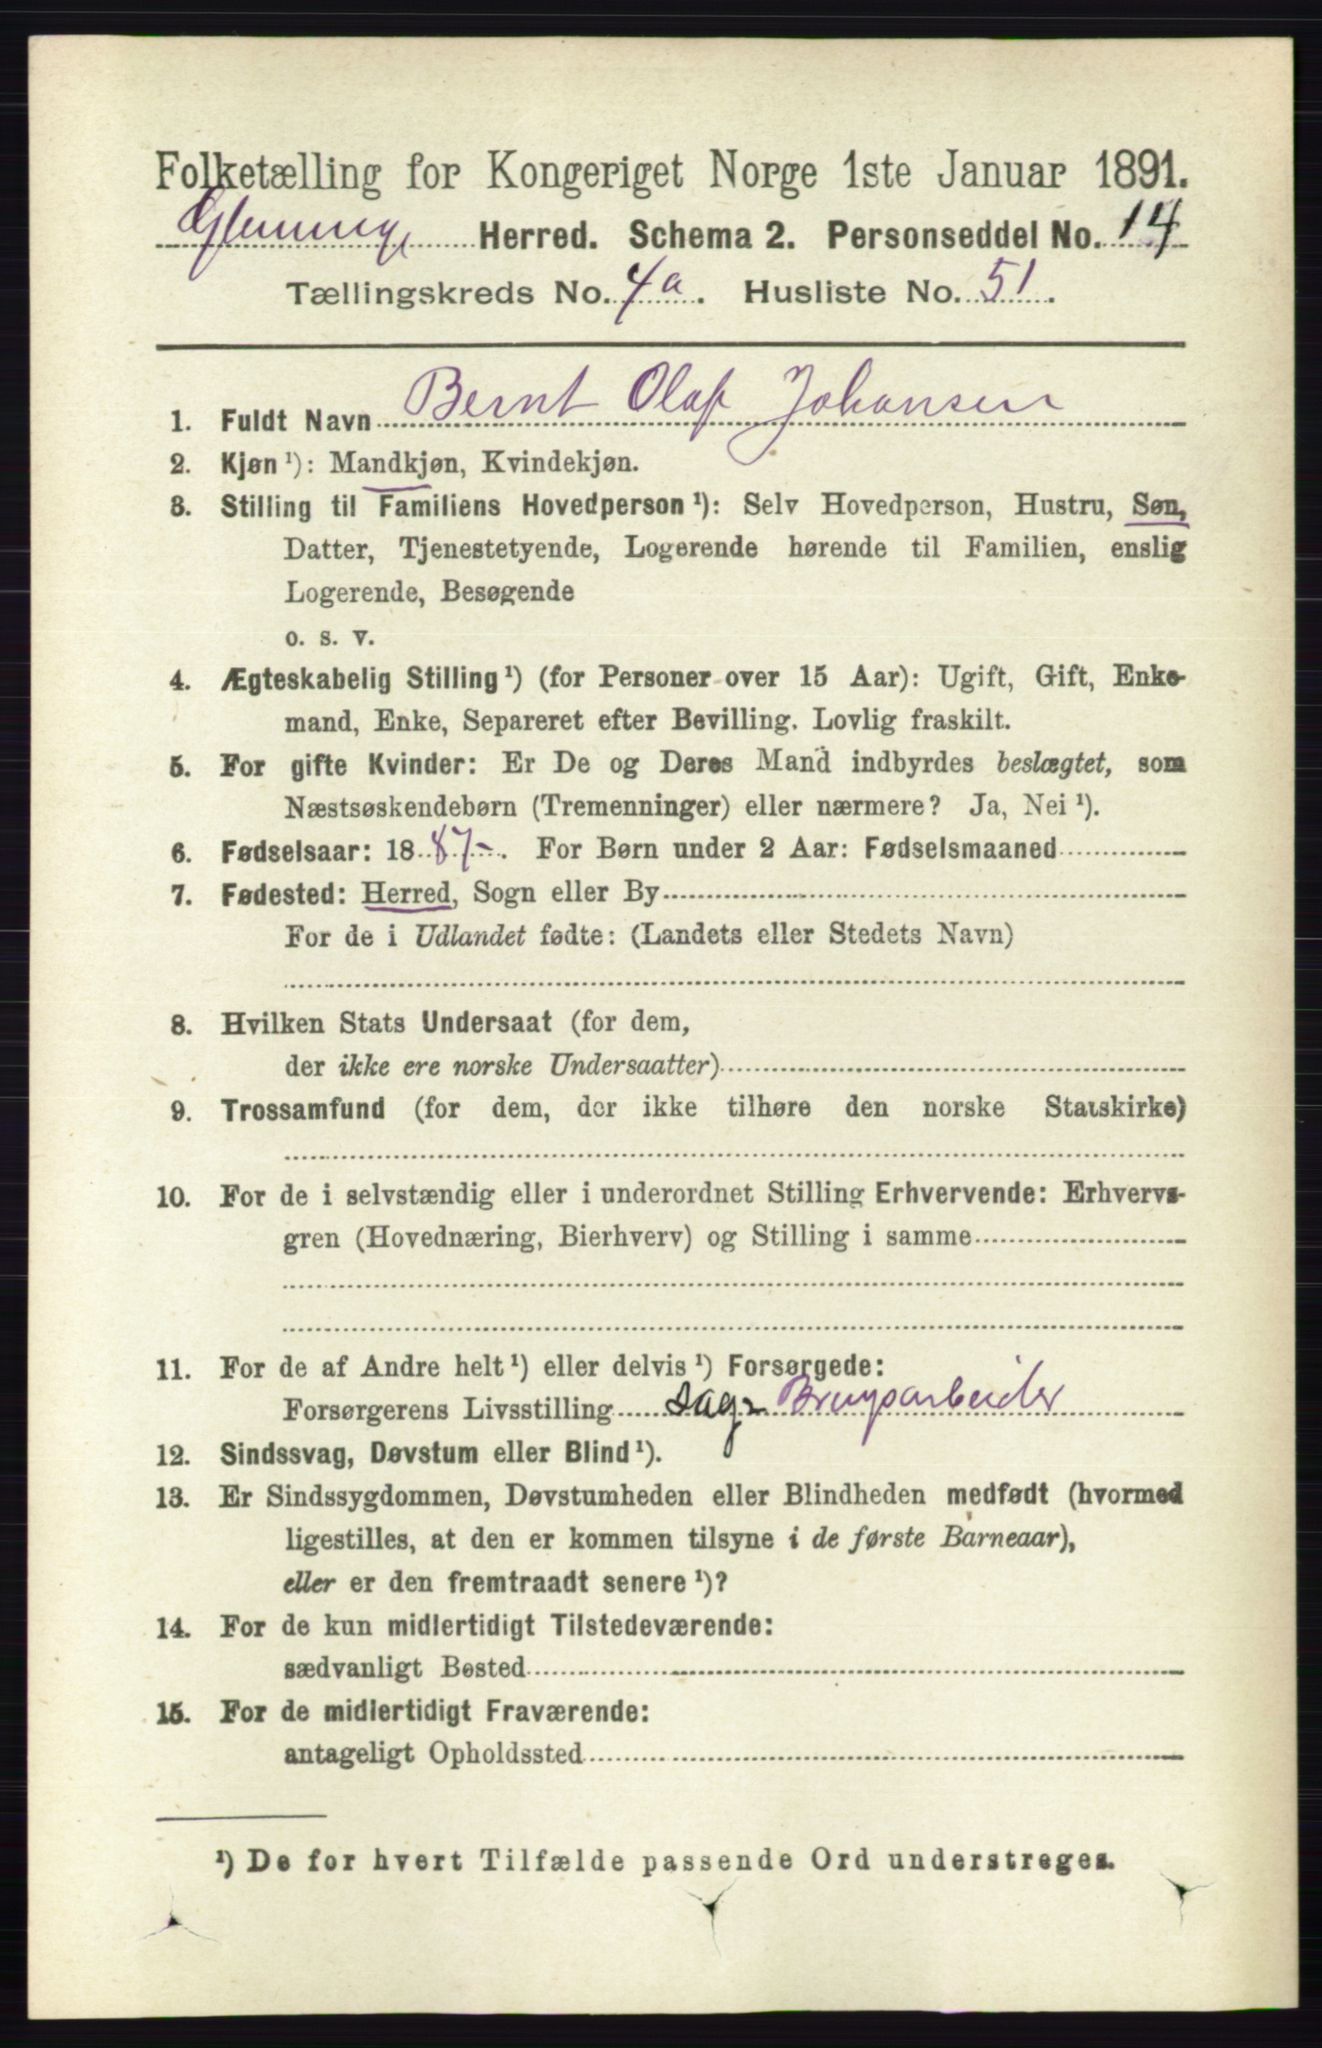 Folketælling for Kongeriget Norge 1ste Januar 1891.
Glemminge Herred. Schema 2. Personseddel No. 14
Tællingskreds No. 4a. Husliste No. 51.
1. Fuldt Navn Bernt Olaf Johansen
2. Kjøn ¹): Mandkjøn, Kvindekjøn.
3. Stilling til Familiens Hovedperson ¹): Selv Hovedperson, Hustru, Søn,
Datter, Tjenestetyende, Logerende hørende til Familien, enslig
Logerende, Besøgende
o. s. v.
4. Ægteskabelig Stilling ¹) (for Personer over 15 Aar): Ugift, Gift, Enke-
mand, Enke, Separeret efter Bevilling. Lovlig fraskilt.
5. For gifte Kvinder: Er De og Deres Mand indbyrdes beslægtet, som
Næstsøskendebørn (Tremenninger) eller nærmere? Ja, Nei ¹).
6. Fødselsaar: 1887-. For Børn under 2 Aar: Fødselsmaaned
7. Fødested: Herred, Sogn eller By
For de i Udlandet fødte: (Landets eller Stedets Navn)
8. Hvilken Stats Undersaat (for dem,
der ikke ere norske Undersaatter)
9. Trossamfund (for dem, der ikke tilhøre den norske Statskirke)
10. For de i selvstændig eller i underordnet Stilling Erhvervende: Erhvervs-
gren (Hovednæring, Bierhverv) og Stilling i samme
11. For de af Andre helt ¹) eller delvis ¹) Forsørgede:
Forsørgerens Livsstilling Sag- Brugsarbeider
12. Sindssvag, Døvstum eller Blind ¹).
13. Er Sindssygdommen, Døvstumheden eller Blindheden medfødt (hvormed
ligestilles, at den er kommen tilsyne i de første Barneaar),
eller er den fremtraadt senere ¹)?
14. For de kun midlertidigt Tilstedeværende:
sædvanligt Bosted
15. For de midlertidigt Fraværende:
antageligt Opholdssted
¹) De for hvert Tilfælde passende Ord understreges.